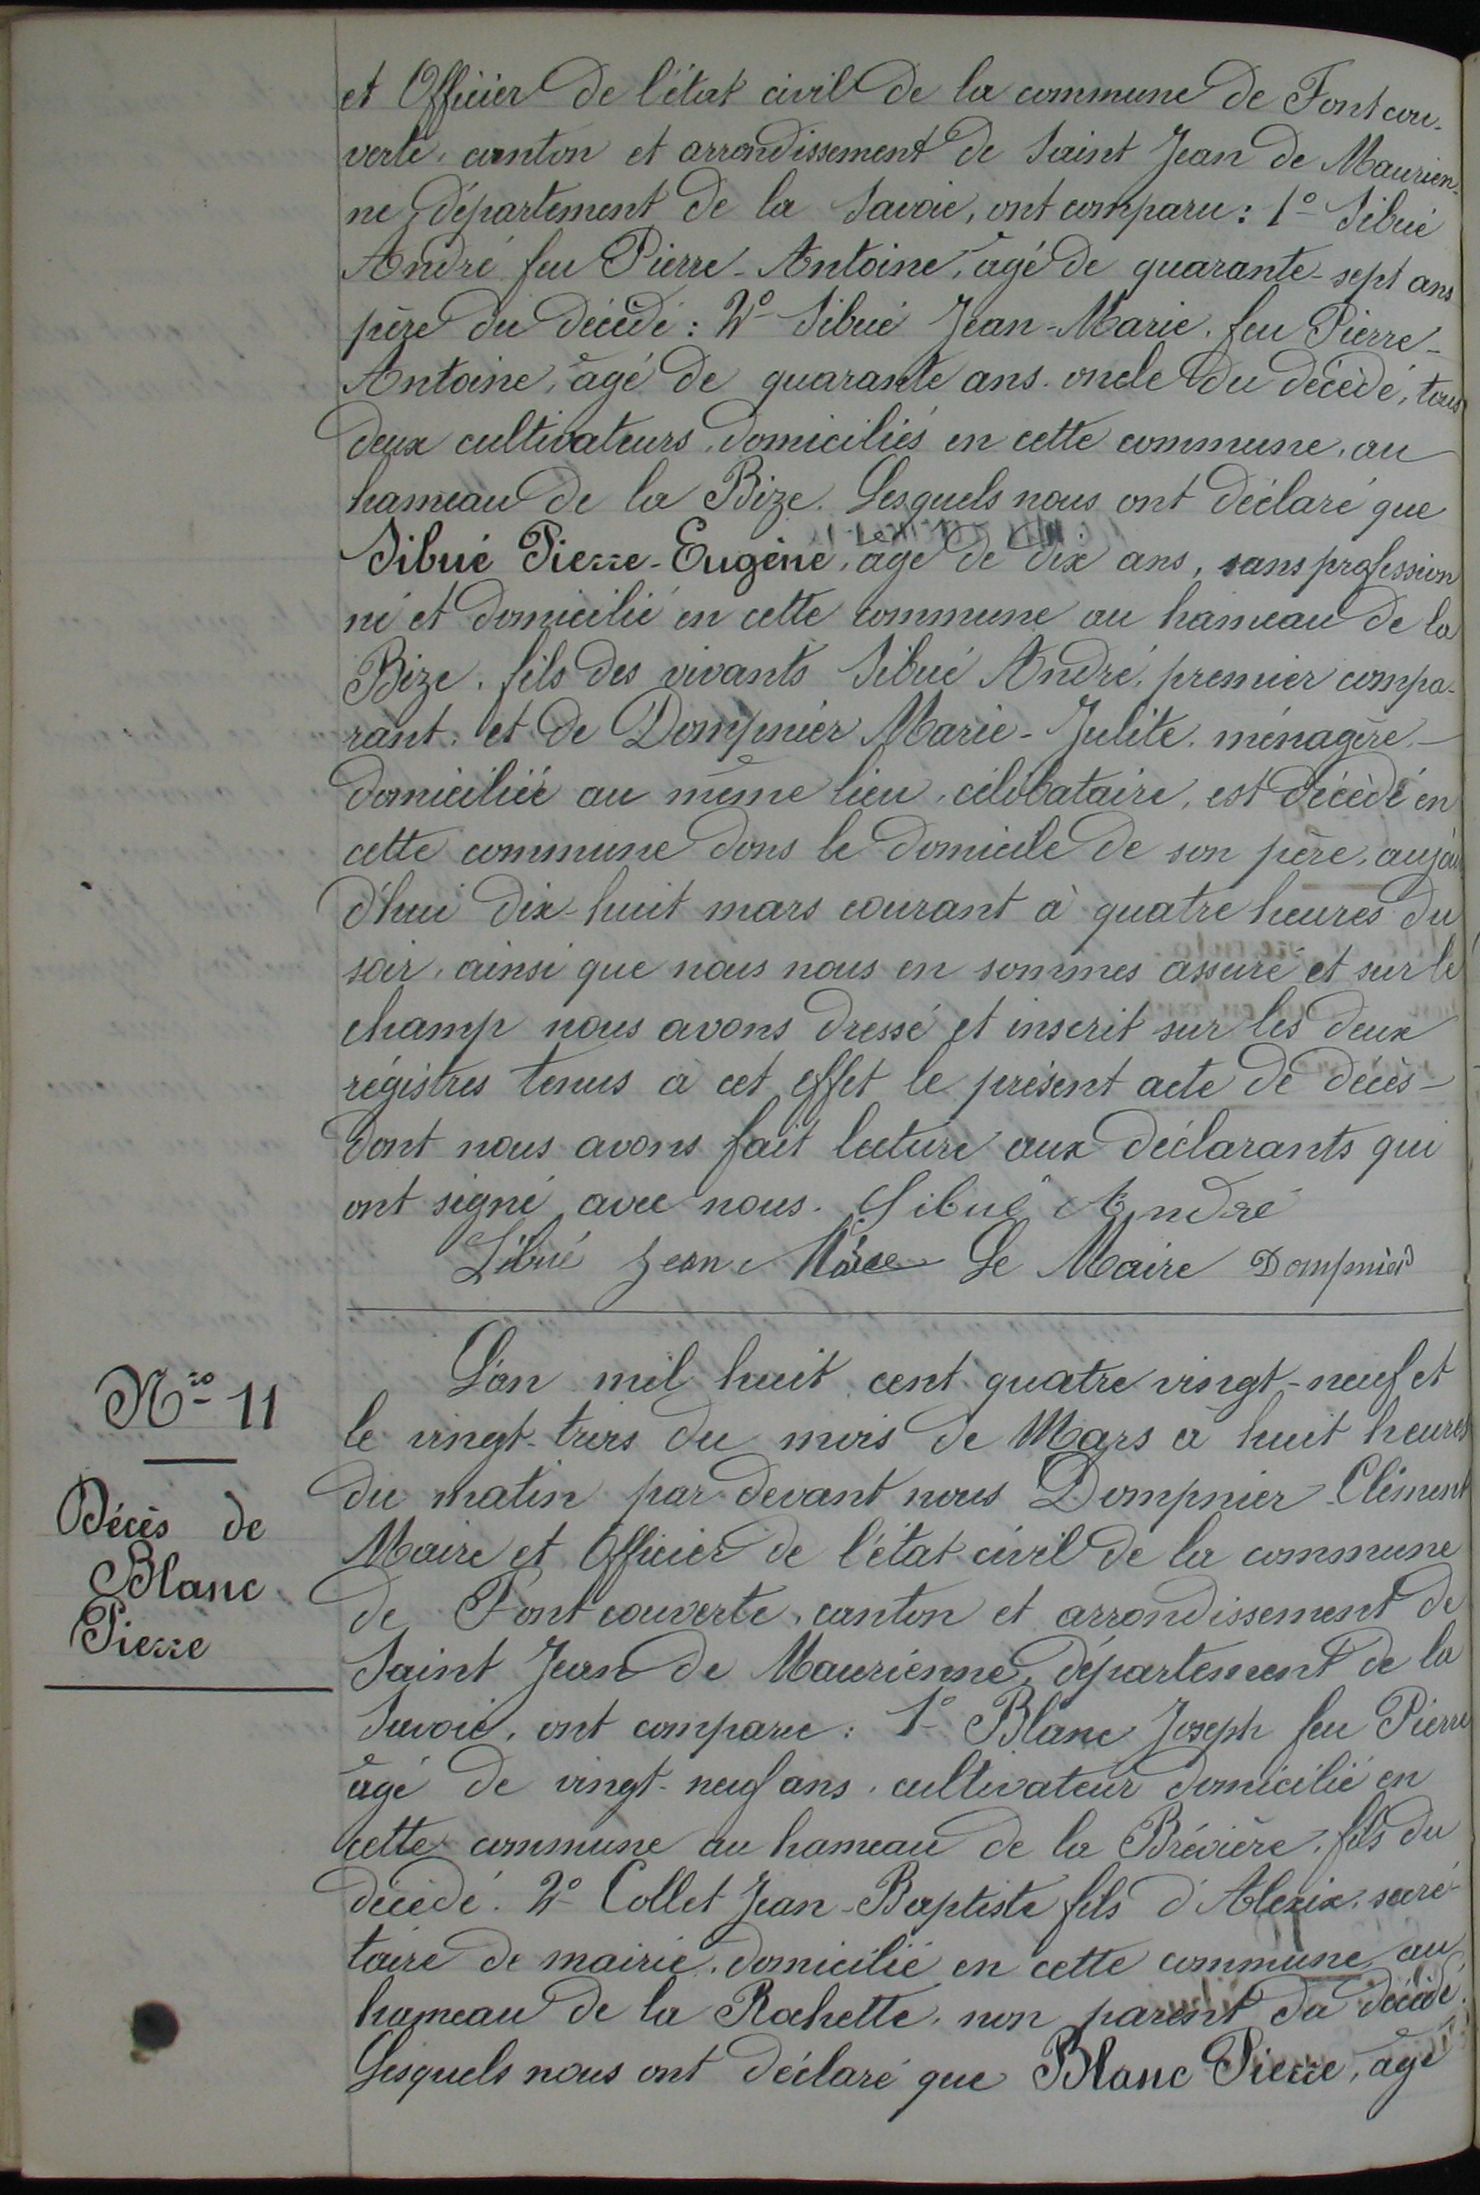 et Officier de l'état civil de la commune de Fontcou-
verte, canton et arrondissement de Saint Jean de Maurien-
ne, département de la Savoie, ont comparu : 1º Sibué
André feu Pierre-Antoine, âgé de quarante-sept ans
père du décèdé : 2º Sibué Jean-Marie, feu Pierre-
Antoine, âgé de quarante ans, oncle du décèdé, tous
deux cultivateurs, domiciliés en cette commune, au
hameau de la Bize. Lesquels nous ont déclaré que
Sibué Pierre-Eugène, âgé de dix ans, sans profession
né et domicilié en cette commune au hameau de la
Bize, fils des vivants Sibué André, premier compa-
rant, et de Dompnier Marie-Julite, ménagère,
domiciliée au même lieu, célibataire, est décèdé en
cette commune dans le domicile de son père, aujour
d'hui dix-huit mars courant à quatre heures du
soir, ainsi que nous nous en sommes assuré et sur le
champ nous avons dressé et inscrit sur les deux
régistres tenus à cet effet le présent acte de décès
dont nous avons fait lecture aux déclarants qui
ont signé avec nous. Sibué André
Sibué Jean Marie Le Maire Dompnier
Nro 11
Décès de
Blanc
Pierre
L'an mil huit cent quatre vingt-neuf et
le vingt-trois du mois de Mars à huit heures
du matin par devant nous Dompnier Clément
Maire et Officier de l'état civil de la commune
de Fontcouverte, canton et arrondissement de
Saint Jean de Maurienne, département de la
Savoie, ont comparu : 1º Blanc Joseph feu Pierre
âgé de vingt-neuf ans, cultivateur domicilié en
cette commune au hameau de la Brévière, fils du
décédé. 2º Collet Jean-Baptiste fils d'Alexix, secré-
taire de mairie, domicilié en cette commune, au
hameau de la Rochette, non parent du décédé.
Lesquels nous ont déclaré que Blanc Pierre, âgé